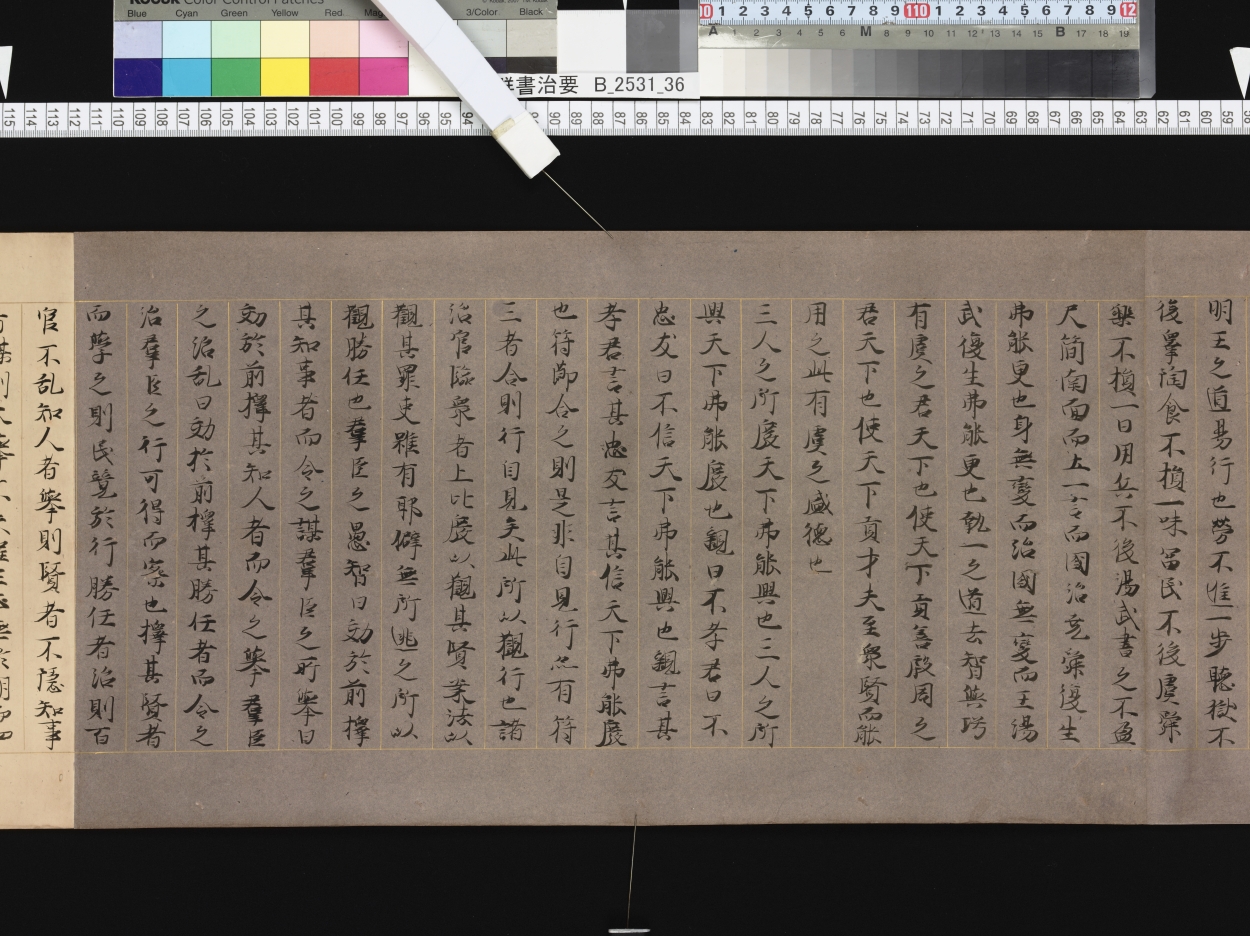 KODAK Color Control Patches
Blue Cyan Green Yellow Red 3/Color Black
群書治要 B_2531_36
明王之道易行也勞不進一步聽獄不
後睪陶食不損一味富民不後虞舜
樂不損一日用兵不後湯武書之不盈
尺簡南面而立一言而國治堯舜復生
弗能更也身無變而治國無變而王湯
武復生弗能更也執一之道去智與巧
有虞之君天下也使天下貢善殷周之
君天下也使天下貢才夫至衆賢而能
用之此有虞之盛德也
三人之所廢天下弗能興也三人之所
興天下弗能廢也親曰不孝君曰不
忠友曰不信天下弗能興也親言其
孝君言其忠友言其信天下弗能廢
也符節合之則是非自見行亦有符
三者合則行自見矣此所以觀行也諸
治官臨衆者上比度以觀其賢案法以
觀其罪吏雖有邪僻無所逃之所以
觀勝任也羣臣之愚智日効於前擇
其知事者而令之謀羣臣之所舉日
効於前擇其知人者而令之舉羣臣
之治乱日効於前擇其勝任者而令之
治羣臣之行可得而察也擇其賢者
而舉之則民競於行勝任者治則百
官不乱知人者舉則賢者不隱知事